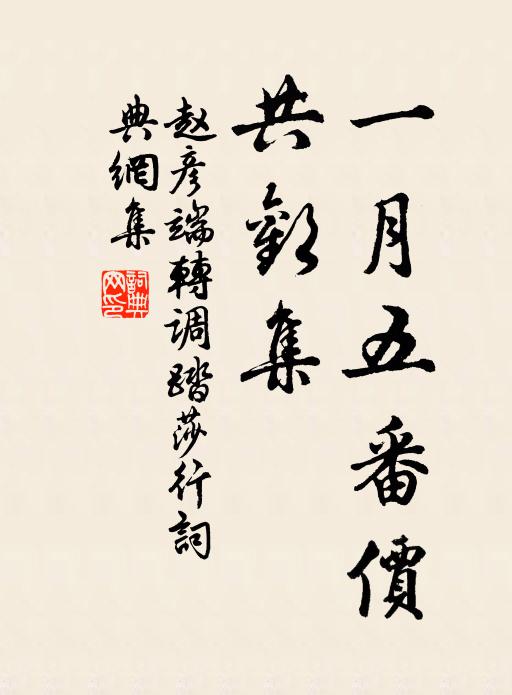 一月五番價
共歡集
赵彥端轉調踏莎行詞
典網集
詞典网印